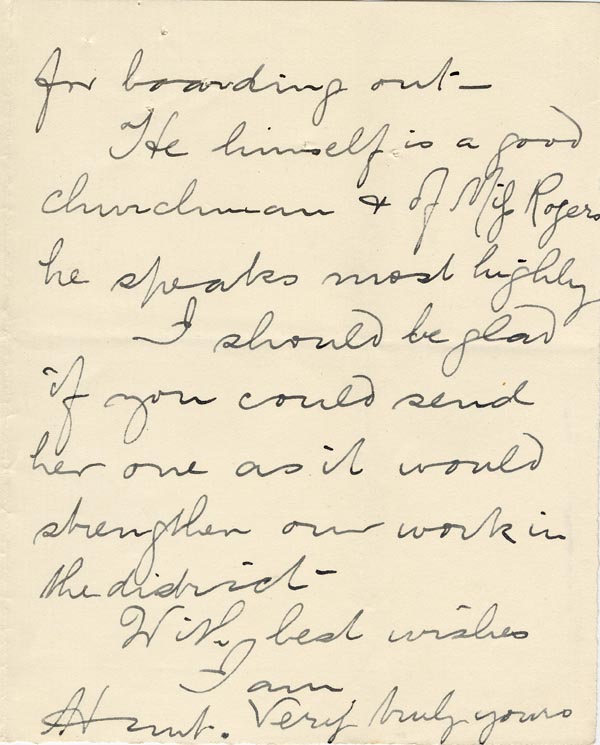 for boarding out -
He himself is a good
churchman & of Miss Rogers
he speaks most highly
I should be glad
if you could send
her one as it would
strengthen our work in
the district -
With best wishes
I am
Very truly yours